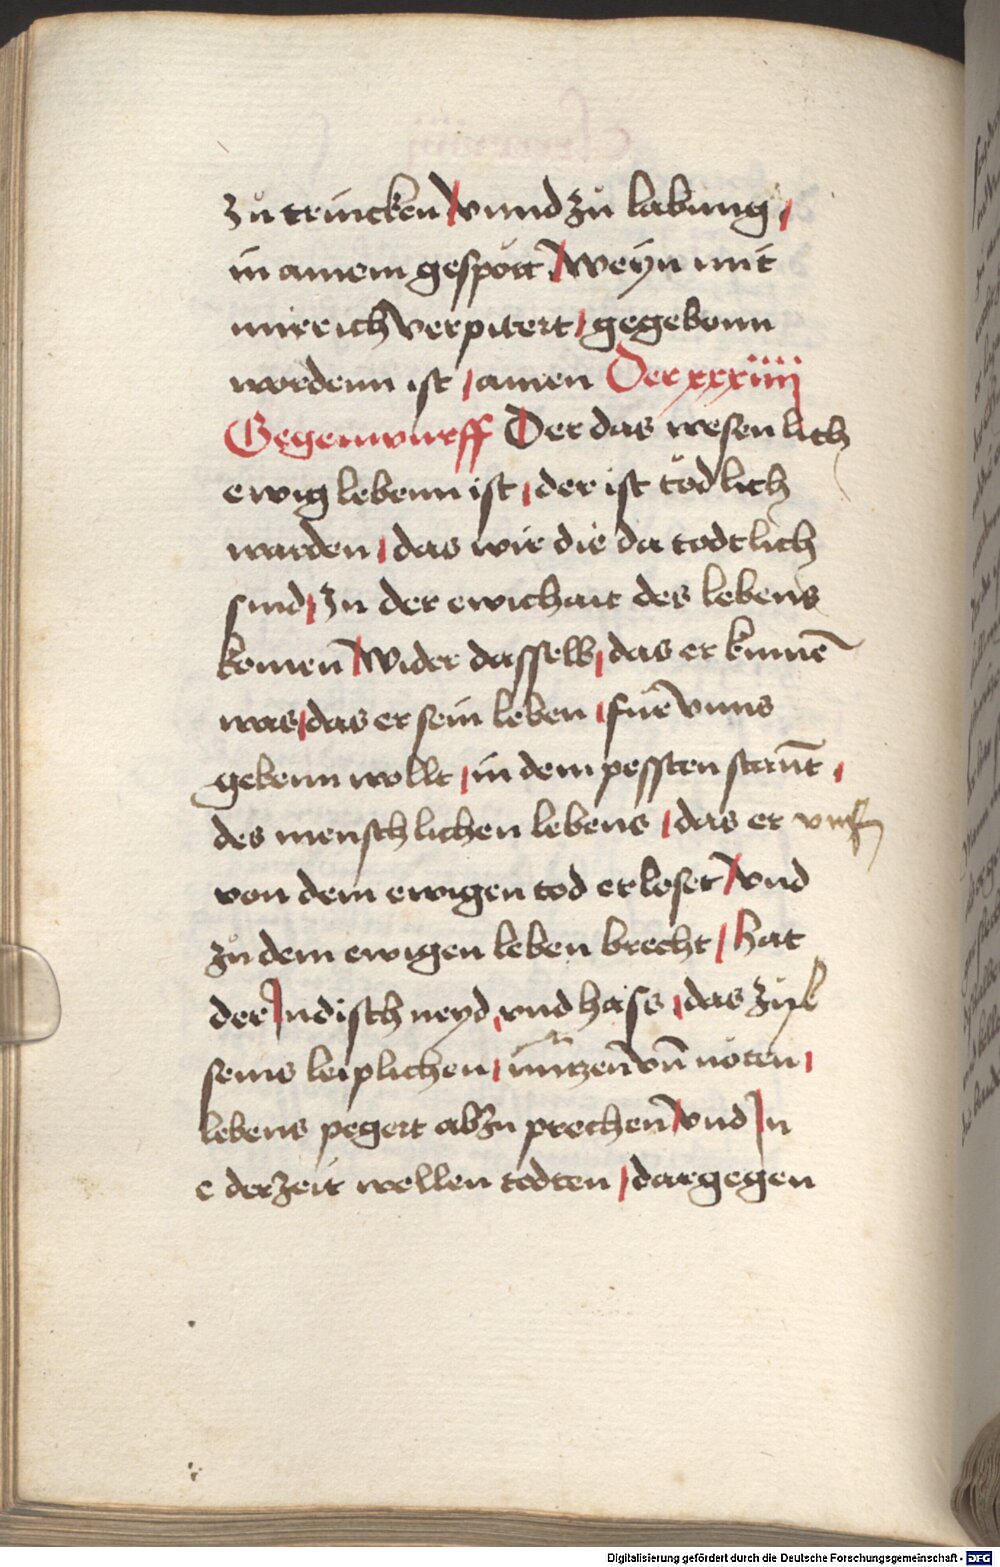 zů trincken vnnd zů labung
in ainem gespött weÿn mit
mirrich verpitert gegebenn
wordenn ist amen Der xxxiiij
Gegenwurff Der das wesenlich
ewig lebenn ist der ist tödlich
warden das wir die da todtlich
sind zu der ewichait des lebens
komen̄ wider dasselb das er kumē
was das er sein leben für vnns
gebenn wollt in dem pessten stan̄t
des menschlichen lebens das er vnß
von dem ewigen tod erloset vnd
zů dem ewigen leben brecht hat
der Judisch neyd vnd hass das zyl
seins leiplichen nutzen̄ vn̄ nöten
lebens pegert abzuprechen̄ vnd In
e der zeit wellen todten dargegen
Digitalisierung gefördert durch die Deutsche Forschungsgemeinschaft - DFG